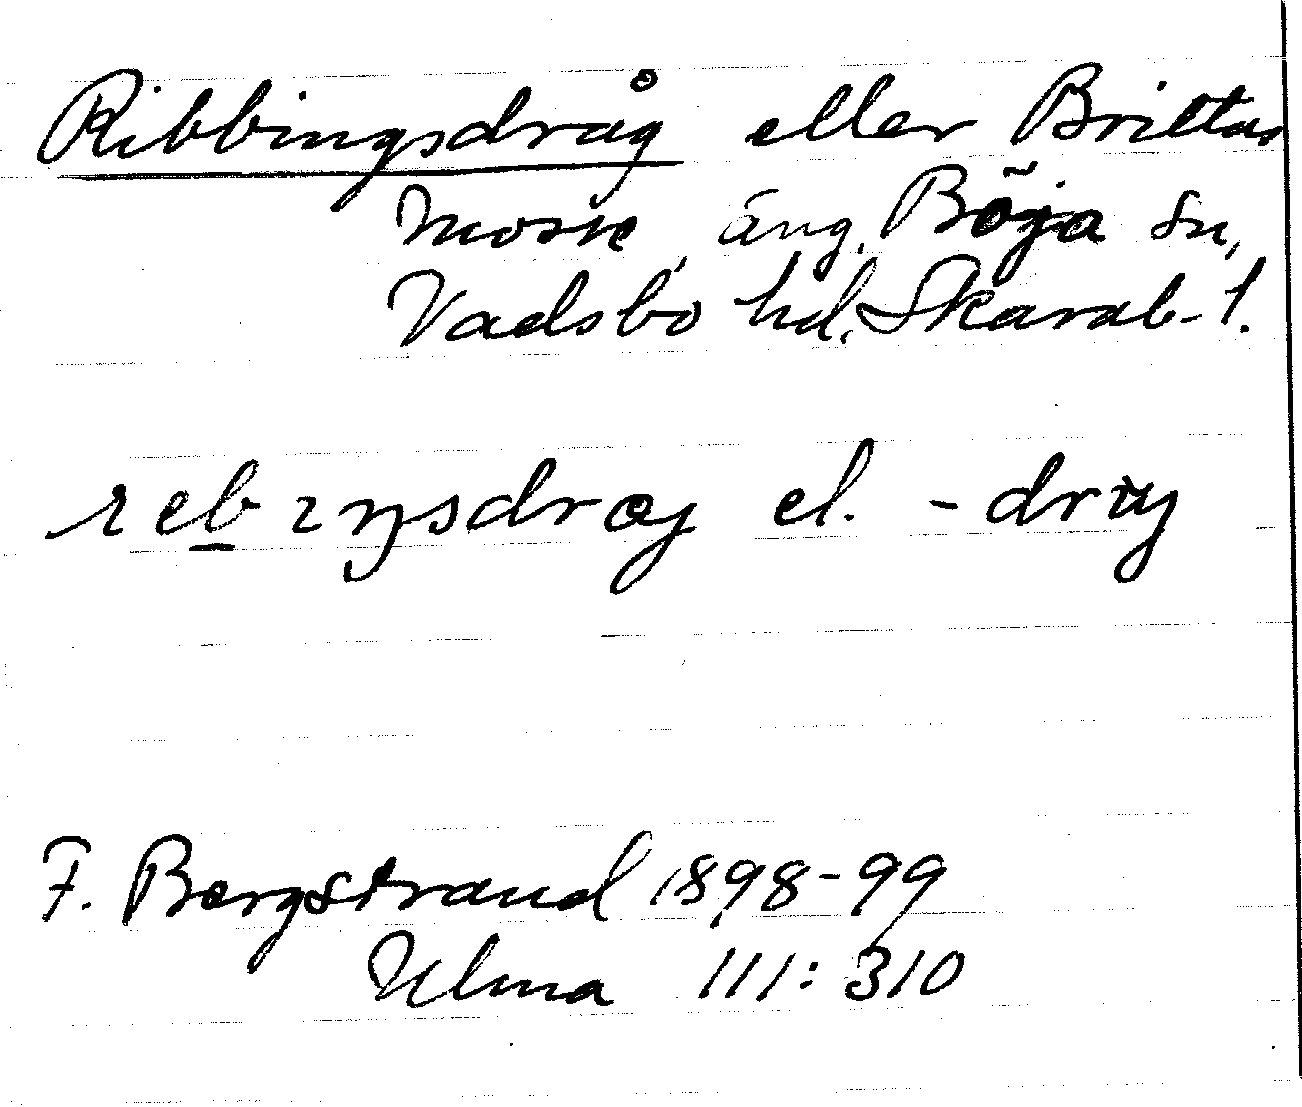 Ribbingsdråg eller Brittas
mosse, äng, Böja sn,
Vadsbo hd, Skarab. l.
rebıŋsdrog el. -
F. Bergstrand 1898-99
Ulma 111:310